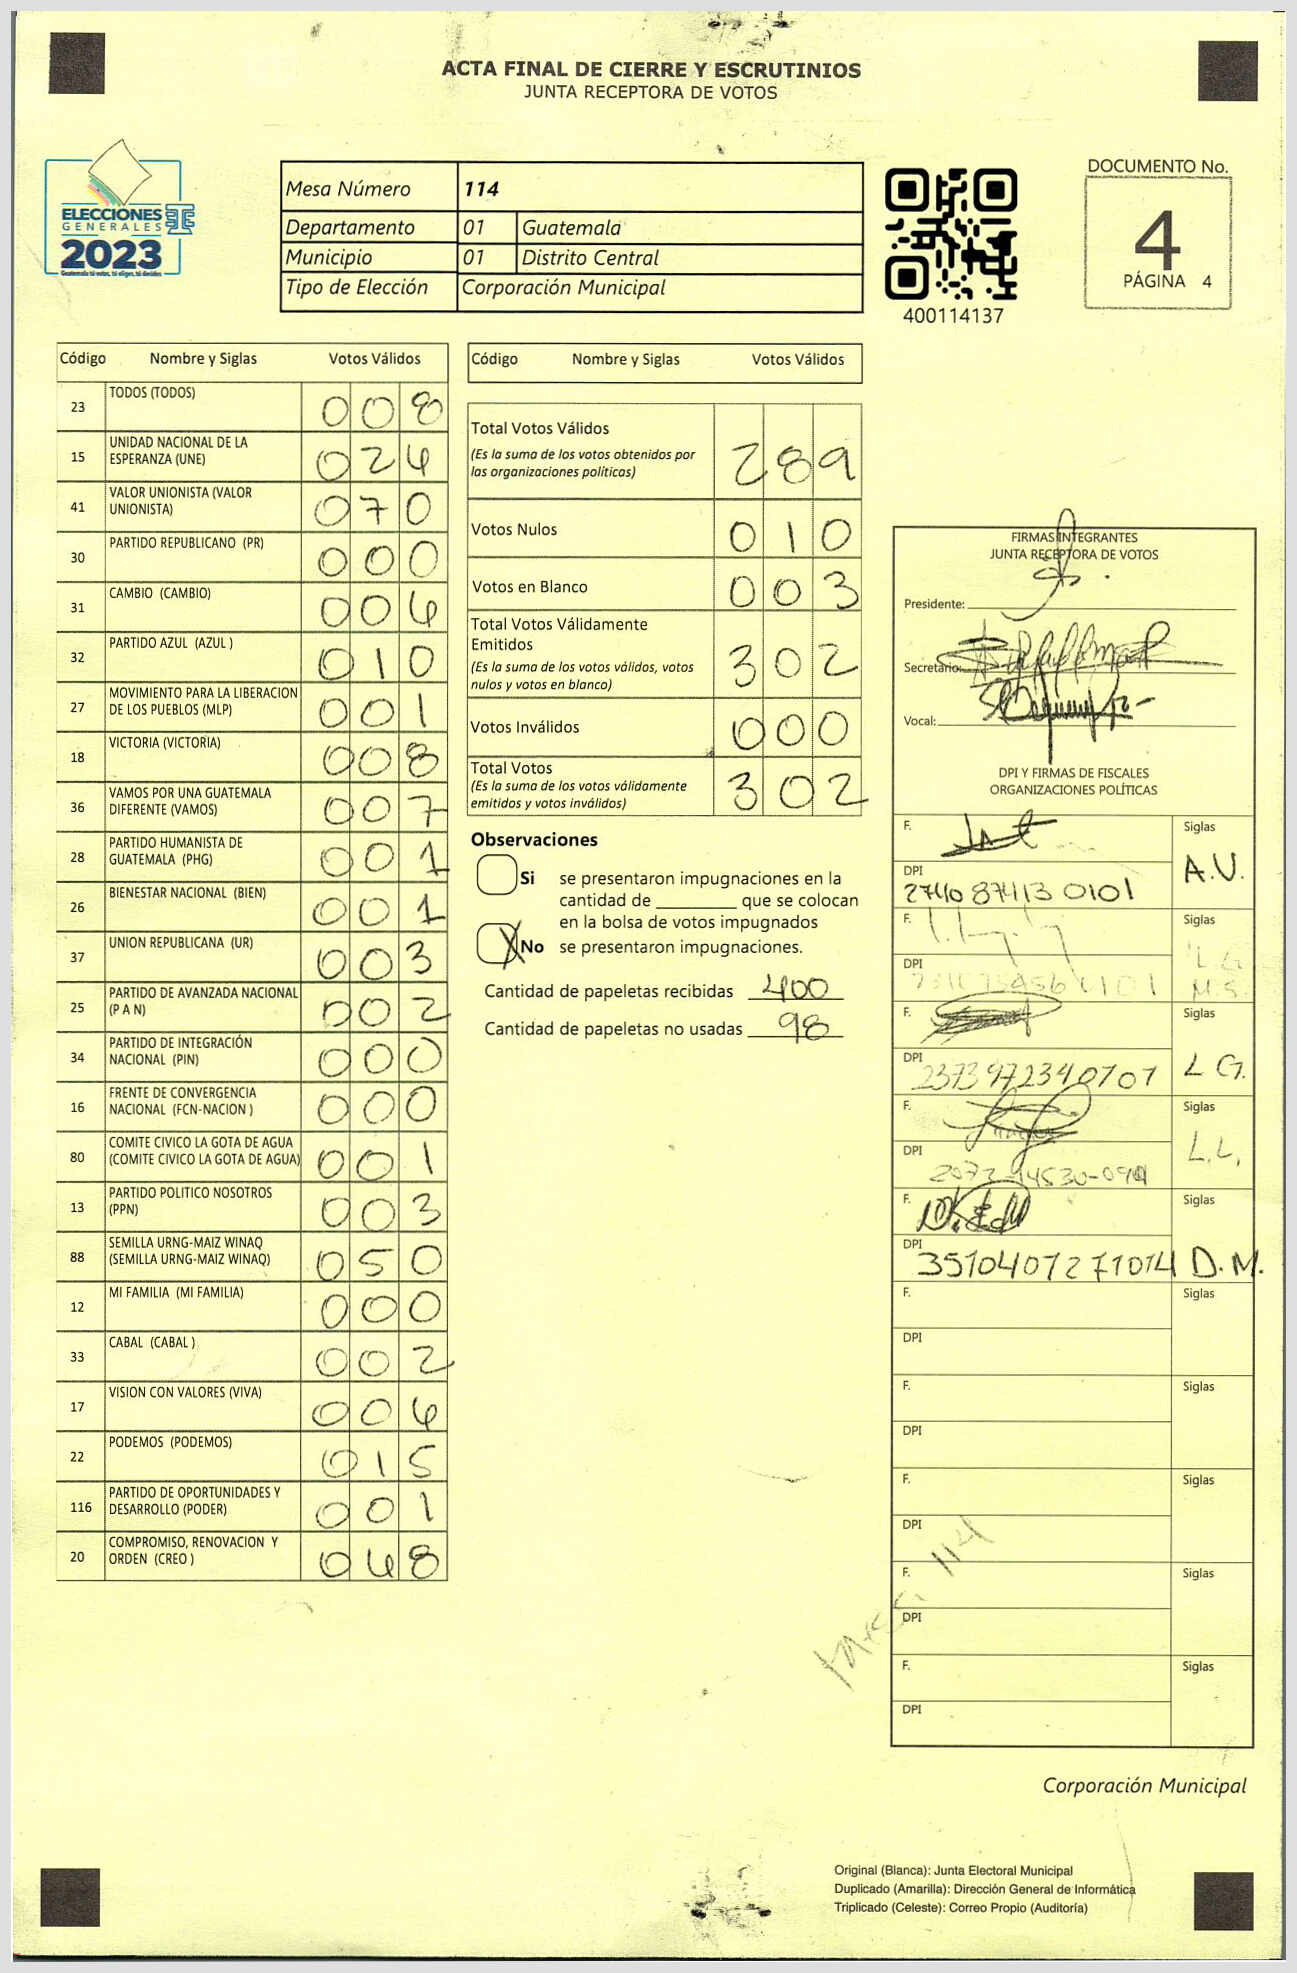 ACTA FINAL DE CIERRE Y ESCRUTINIOS
JUNTA RECEPTORA DE VOTOS
ELECCIONES
GENERALES
2023
Guatemala tú votas, tú eliges, tú decides
Mesa Número 114
Departamento 01 Guatemala
Municipio 01 Distrito Central
Tipo de Elección Corporación Municipal
400114137
DOCUMENTO No.
4
PÁGINA 4
Código Nombre y Siglas Votos Válidos
23 TODOS (TODOS) 008
15 UNIDAD NACIONAL DE LA
ESPERANZA (UNE) 024
41 VALOR UNIONISTA (VALOR
UNIONISTA) 070
30 PARTIDO REPUBLICANO (PR) 000
31 CAMBIO (CAMBIO) 004
32 PARTIDO AZUL (AZUL ) 010
27 MOVIMIENTO PARA LA LIBERACION
DE LOS PUEBLOS (MLP) 001
18 VICTORIA (VICTORIA) 008
36 VAMOS POR UNA GUATEMALA
DIFERENTE (VAMOS) 007
28 PARTIDO HUMANISTA DE
GUATEMALA (PHG) 001
26 BIENESTAR NACIONAL (BIEN) 001
37 UNION REPUBLICANA (UR) 003
25 PARTIDO DE AVANZADA NACIONAL
(P A N) 002
34 PARTIDO DE INTEGRACIÓN
NACIONAL (PIN) 000
16 FRENTE DE CONVERGENCIA
NACIONAL (FCN-NACION ) 000
80 COMITE CIVICO LA GOTA DE AGUA
(COMITE CIVICO LA GOTA DE AGUA) 001
13 PARTIDO POLITICO NOSOTROS
(PPN) 003
88 SEMILLA URNG-MAIZ WINAQ
(SEMILLA URNG-MAIZ WINAQ) 050
12 MI FAMILIA (MI FAMILIA) 000
33 CABAL (CABAL ) 002
17 VISION CON VALORES (VIVA) 004
22 PODEMOS (PODEMOS) 015
116 PARTIDO DE OPORTUNIDADES Y
DESARROLLO (PODER) 001
20 COMPROMISO, RENOVACION Y
ORDEN (CREO ) 048
Código Nombre y Siglas Votos Válidos
Total Votos Válidos
(Es la suma de los votos obtenidos por
las organizaciones políticas) 289
Votos Nulos 010
Votos en Blanco 003
Total Votos Válidamente
Emitidos
(Es la suma de los votos válidos, votos
nulos y votos en blanco) 302
Votos Inválidos 000
Total Votos
(Es la suma de los votos válidamente
emitidos y votos inválidos) 302
Observaciones
Si se presentaron impugnaciones en la
cantidad de ________ que se colocan
en la bolsa de votos impugnados
X No se presentaron impugnaciones.
Cantidad de papeletas recibidas 400
Cantidad de papeletas no usadas 98
FIRMAS INTEGRANTES
JUNTA RECEPTORA DE VOTOS
Presidente:
Secretario:
Vocal:
DPI Y FIRMAS DE FISCALES
ORGANIZACIONES POLÍTICAS
F. Siglas
A.V.
DPI
2740 87413 0101
F. Siglas
L G
M.S.
DPI
F. Siglas
L G.
DPI
2373972340101
F. Siglas
L.L.
DPI
F. Siglas
D.M.
DPI
3510407271014
F. Siglas
DPI
F. Siglas
DPI
F. Siglas
DPI
F. Siglas
DPI
F. Siglas
DPI
mesa 114
Corporación Municipal
Original (Blanca): Junta Electoral Municipal
Duplicado (Amarilla): Dirección General de Informática
Triplicado (Celeste): Correo Propio (Auditoría)